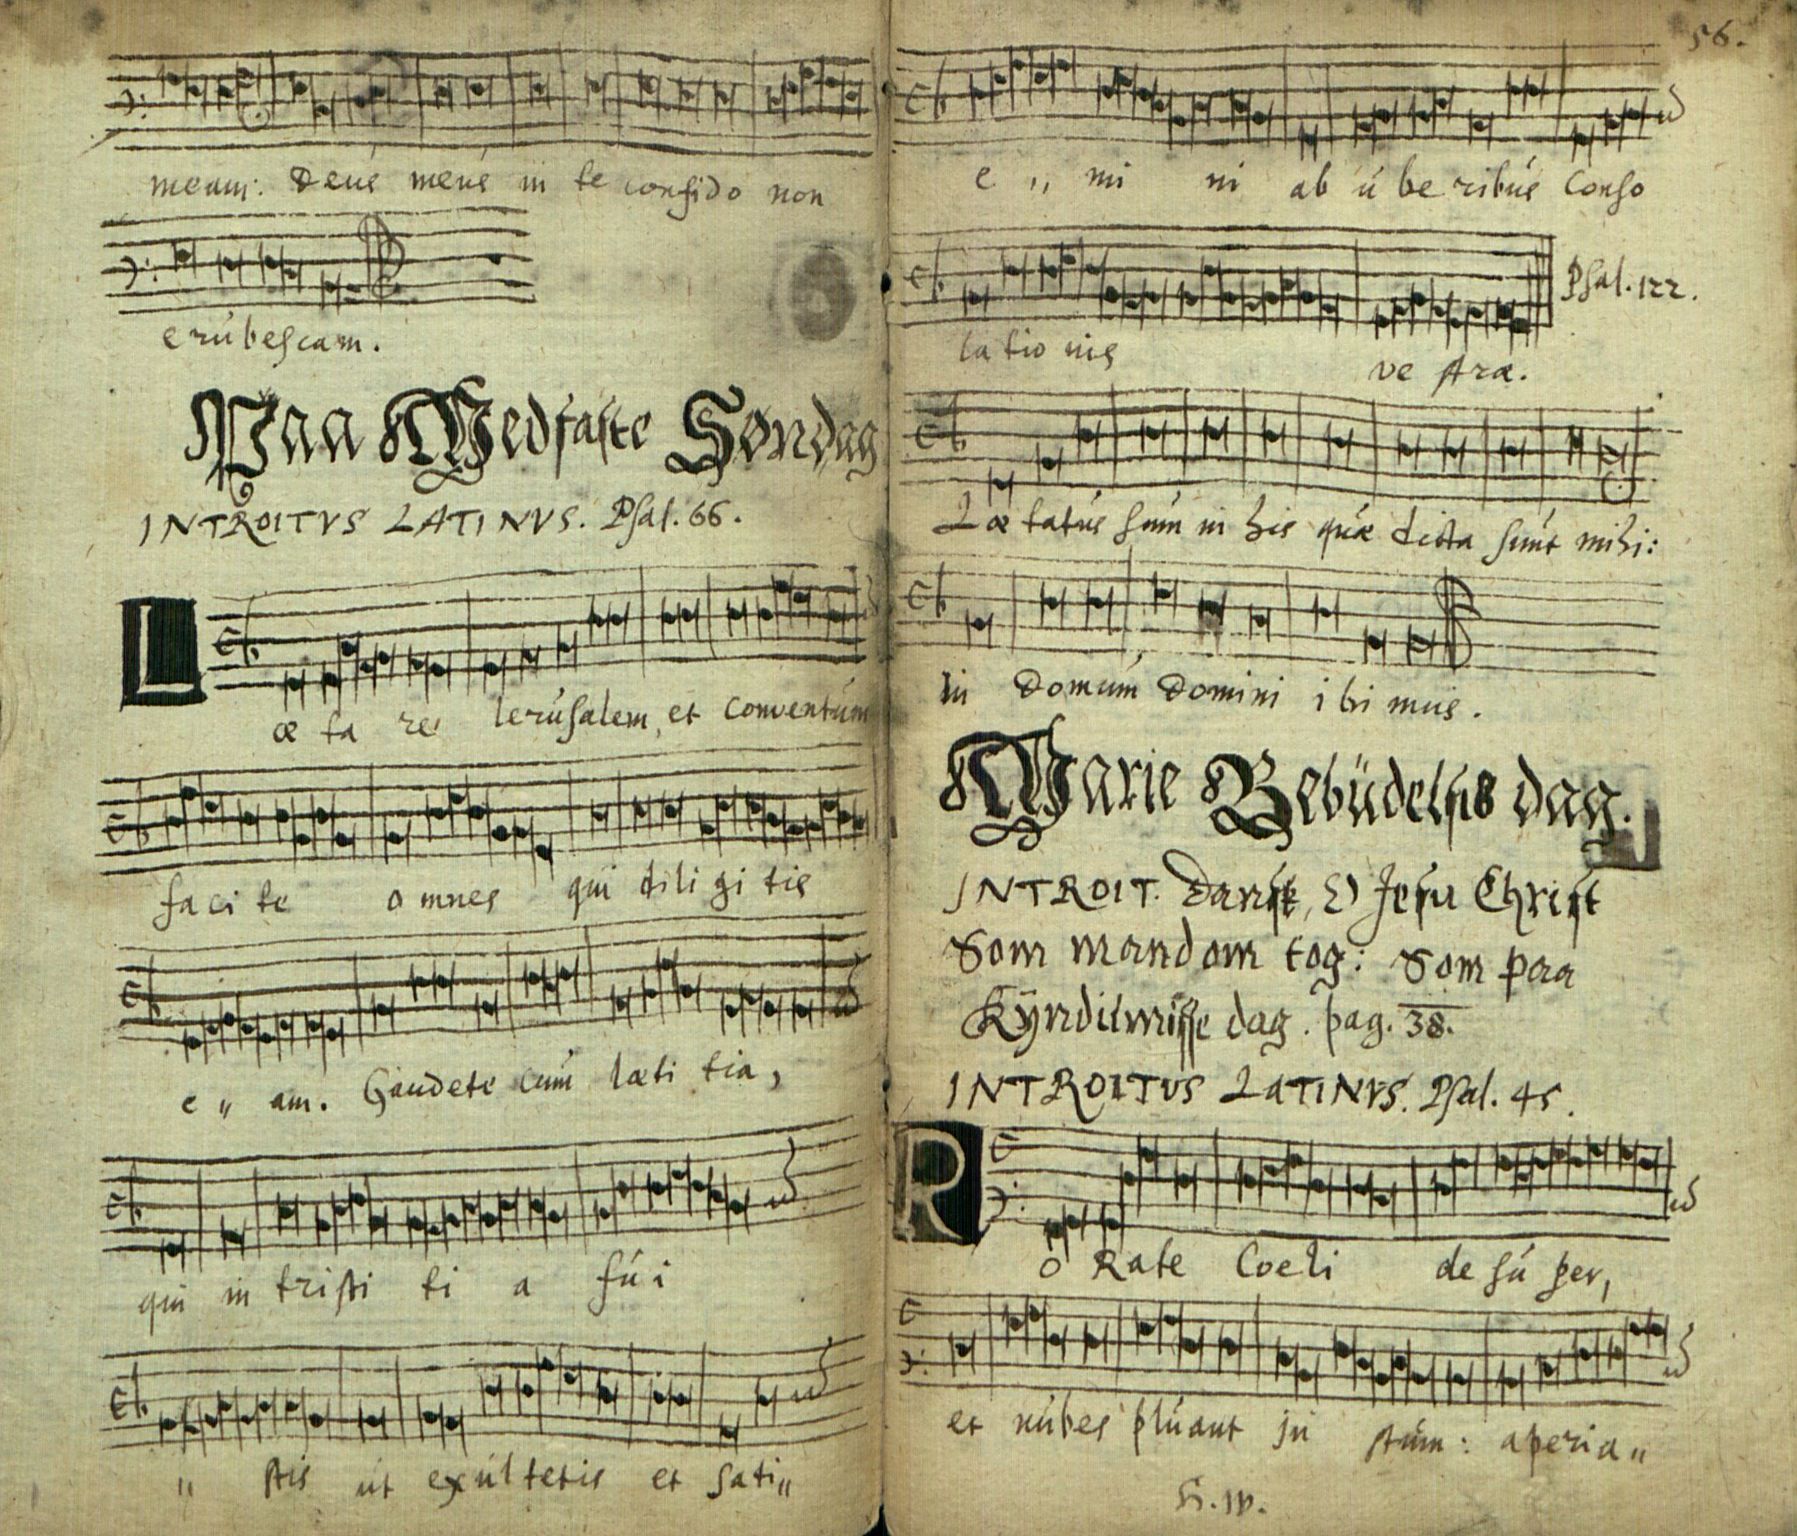 meam: Deus meus in te confido non
erubescam.
Paa Medfaste Søndag
INTROITVS LATINVS. Psal. 66.
Lae ta re Ierusalem, et conventum
faci te omnes qui diligi tis
e „ am. Gaudete cum laeti tia,
qui in tristi ti a fu i
„ stis ut exultetis et sati„
56.
e „ mi ni ab u be ribus Conso
la tio nis ve stræ.
Psal. 122.
Læ tatus sum in his quæ dicta sunt mihi:
in domum Domini i bi mus.
Marie Bebüdelsis dag.
INTROIT. Dansk, O Jesu Christ
Som mandom tog: Som paa
Kÿndilmisse dag. pag. 38.
INTROITUS LATINVS. Psal. 45.
RO Rate Coeli de su per,
et nubes pluant ju stum: aperia„
H. iv.